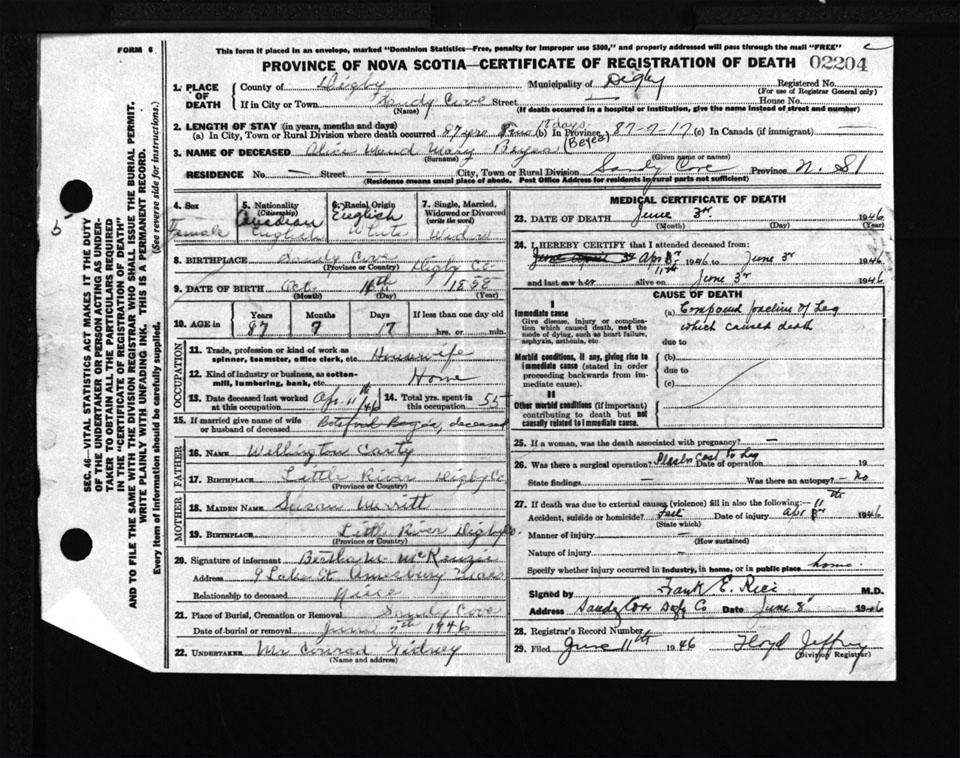 FORM 6.
This form if placed in an envelope, marked "Dominion Statistics—Free, penalty for improper use $300," and properly addressed will pass through the mail "FREE"
PROVINCE OF NOVA SCOTIA—CERTIFICATE OF REGISTRATION OF DEATH 02204
1. PLACE OF DEATH County of Digby Municipality of Digby Registered No.
(For use of Registrar General only)
If in City or Town Sandy Cove Street — House No.
(Name) (If death occurred in a hospital or institution, give the name instead of street and number)
2. LENGTH OF STAY (in years, months and days)
(a) In City, Town or Rural Division where death occurred 87 yrs 7 mos 17 days (b) In Province 87-7-17 (c) In Canada (if immigrant) —
3. NAME OF DECEASED Alice Maud Mary (Beyea)
(Surname) (Given name or names)
RESIDENCE No — Street — City, Town or Rural Division Sandy Cove Province N. S.
(Residence means usual place of abode. Post Office Address for residents in rural parts not sufficient)
4. Sex
Female
5. Nationality
(Citizenship)
Canadian
English
6. Racial Origin
English
White
7. Single, Married, Widowed or Divorced
(write the word)
Widow
8. BIRTHPLACE Sandy Cove Digby Co.
(Province or Country)
9. DATE OF BIRTH Oct 1858
(Month) (Day) (Year)
10. AGE in Years Months Days If less than one day old
87 7 17 hrs. or min.
OCCUPATION
11. Trade, profession or kind of work as spinner, teamster, office clerk, etc. Housewife
12. Kind of industry or business, as cotton-mill, lumbering, bank, etc. Home
13. Date deceased last worked at this occupation Apr 11th/46
14. Total yrs. spent in this occupation 55
15. If married give name of wife or husband of deceased Botsford deceased
FATHER
16. NAME Wellington Carty
17. BIRTHPLACE Little River Digby Co.
(Province or Country)
MOTHER
18. MAIDEN NAME Susan Merritt
19. BIRTHPLACE Little River Digby Co.
(Province or Country)
20. Signature of informant Bertha M. McKenzie
Address 9 Lake St. Amesbury Mass
Relationship to deceased Niece
21. Place of Burial, Cremation or Removal Sandy Cove
Date of burial or removal June 1946
22. UNDERTAKER Mr Conrad Gidney
(Name and address)
MEDICAL CERTIFICATE OF DEATH
23. DATE OF DEATH June 3rd 1946
(Month) (Day) (Year)
24. I HEREBY CERTIFY that I attended deceased from:
Apr 11th 1946 to June 3rd 1946
and last saw her alive on June 3rd 1946
CAUSE OF DEATH
I
Immediate cause
Give disease, injury or complication which caused death, not the mode of dying, such as heart failure, asphyxia, asthenia, etc.
(a) Compound fracture of Leg
which caused death
due to
Morbid conditions, if any, giving rise to immediate cause (stated in order proceeding backwards from immediate cause).
(b)
due to
(c)
II
Other morbid conditions (if important) contributing to death but not causally related to immediate cause.
25. If a woman, was the death associated with pregnancy? —
26. Was there a surgical operation? Plaster Cast to Leg Date of operation 19
State findings — Was there an autopsy? - no
27. If death was due to external causes (violence) fill in also the following:—
Accident, suicide or homicide? Fall Date of injury Apr 11th 1946
(State which)
Manner of injury —
(How sustained)
Nature of injury —
Specify whether injury occurred in industry, in home, or in public place home.
Signed by Frank E. Rice M.D.
Address Sandy Cove Digby Co Date June 8 1946
28. Registrar's Record Number
29. Filed June 11th 1946 Floyd Jeffrey
(Division Registrar)
SEC. 46 VITAL STATISTICS ACT MAKES IT THE DUTY OF THE UNDERTAKER OR PERSON ACTING AS UNDERTAKER TO OBTAIN ALL THE PARTICULARS REQUIRED IN THE "CERTIFICATE OF REGISTRATION OF DEATH" AND TO FILE THE SAME WITH THE DIVISION REGISTRAR WHO SHALL ISSUE THE BURIAL PERMIT.
WRITE PLAINLY WITH UNFADING INK. THIS IS A PERMANENT RECORD.
Every item of information should be carefully supplied. (See reverse side for instructions).
5